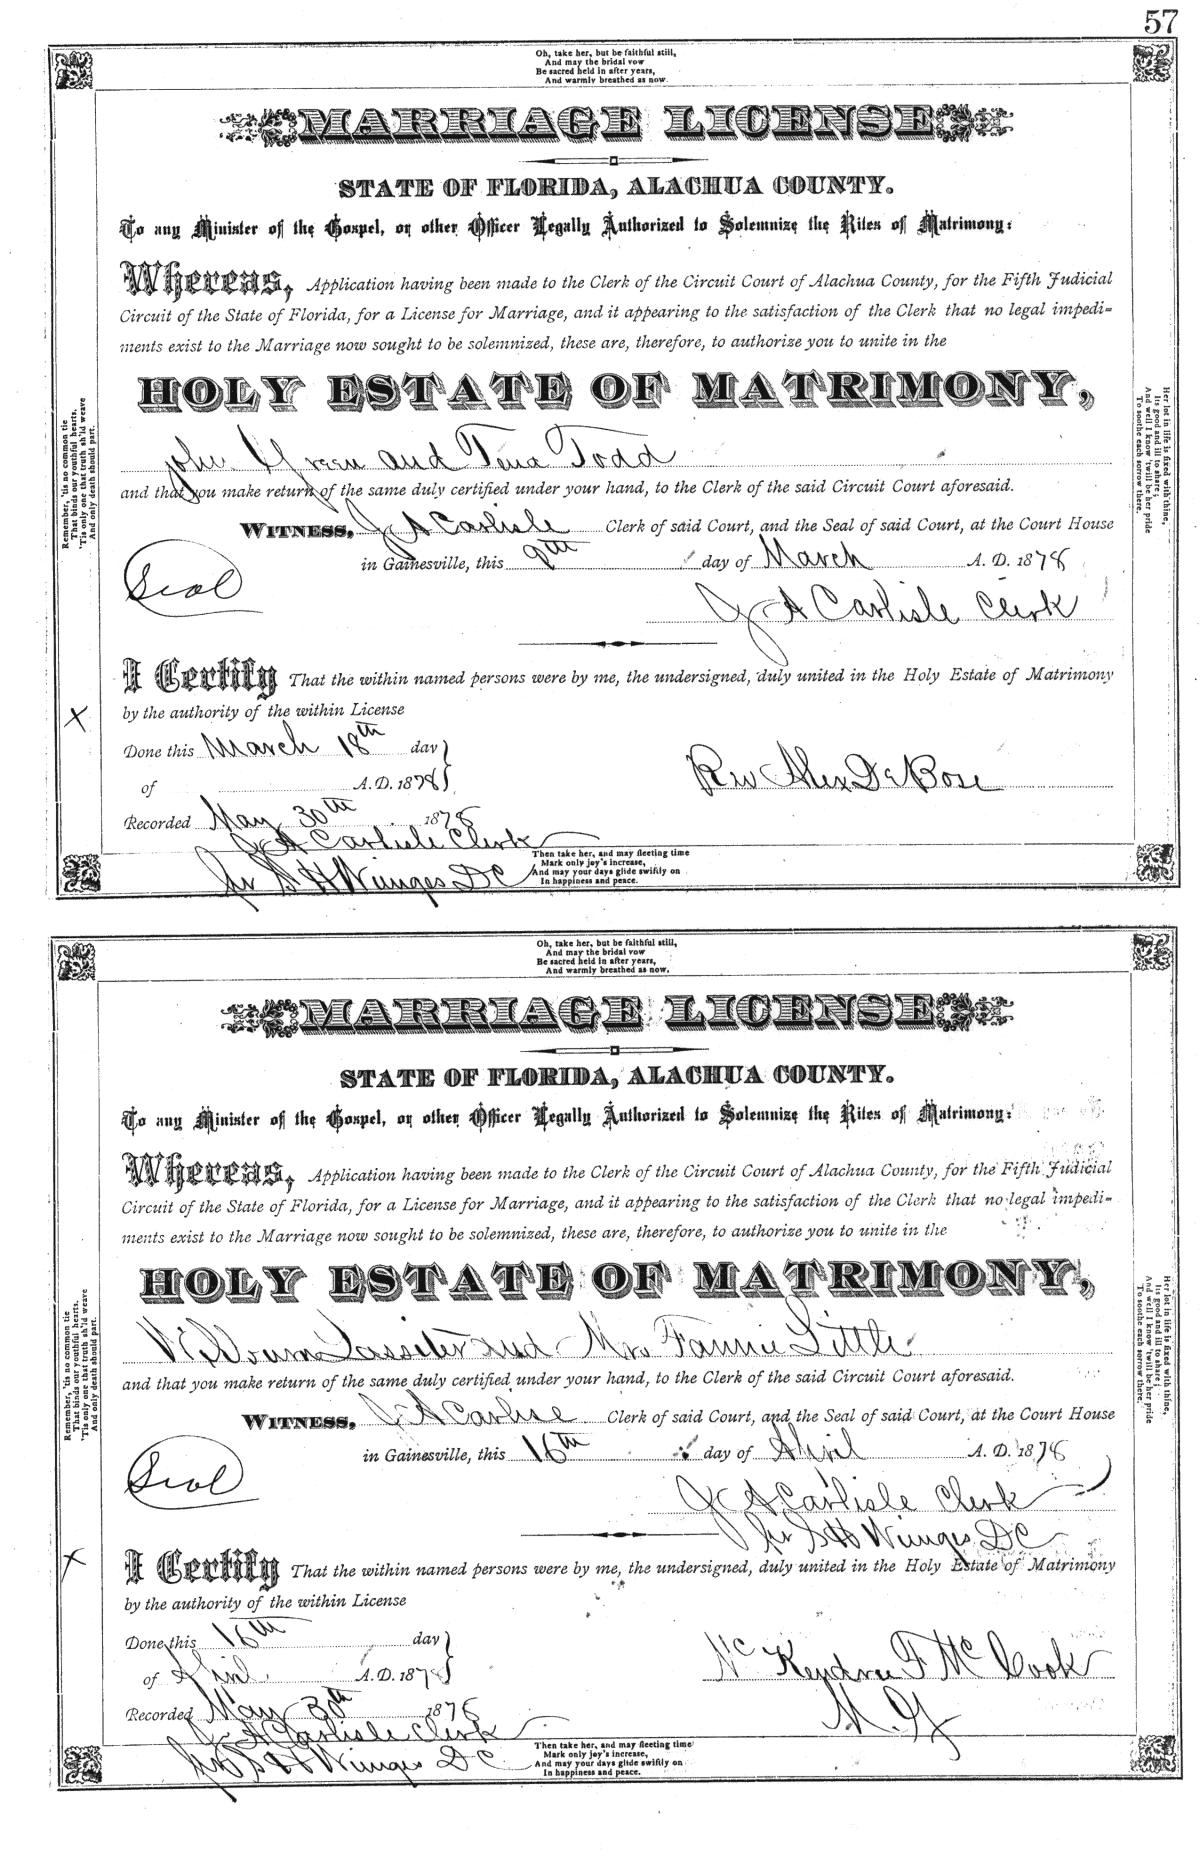 57
Oh, take her, but be faithful still,
And may the bridal vow
Be sacred held in after years,
And warmly breathed as now.
MARRIAGE LICENSE
STATE OF FLORIDA, ALACHUA COUNTY.
To any Minister of the Gospel, or other Officer Legally Authorized to Solemnize the Rites of Matrimony:
Whereas, Application having been made to the Clerk of the Circuit Court of Alachua County, for the Fifth Judicial
Circuit of the State of Florida, for a License for Marriage, and it appearing to the satisfaction of the Clerk that no legal impedi-
ments exist to the Marriage now sought to be solemnized, these are, therefore, to authorize you to unite in the
HOLY ESTATE OF MATRIMONY,
John Green and Tena Todd
and that you make return of the same duly certified under your hand, to the Clerk of the said Circuit Court aforesaid.
WITNESS, J A Carlisle Clerk of said Court, and the Seal of said Court, at the Court House
in Gainesville, this 9th day of March A. D. 1878
Seal
J A Carlisle Clerk
I Certify That the within named persons were by me, the undersigned, duly united in the Holy Estate of Matrimony
by the authority of the within License
X
Done this March 18th day
of A. D. 1878
Rev Alex DeBose
Recorded May 30th 1878
J A Carlisle Clerk
pr S H Wienges DC
Remember, 'tis no common tie
That binds our youthful hearts,
'Tis only one that truth sh'ld weave
And only death should part.
Her lot in life is fixed with thine,
Its good and ill to share;
And well I know 'twill be her pride
To soothe each sorrow there.
Then take her, and may fleeting time
Mark only joy's increase,
And may your days glide swiftly on
In happiness and peace.
Oh, take her, but be faithful still,
And may the bridal vow
Be sacred held in after years,
And warmly breathed as now.
MARRIAGE LICENSE
STATE OF FLORIDA, ALACHUA COUNTY.
To any Minister of the Gospel, or other Officer Legally Authorized to Solemnize the Rites of Matrimony:
Whereas, Application having been made to the Clerk of the Circuit Court of Alachua County, for the Fifth Judicial
Circuit of the State of Florida, for a License for Marriage, and it appearing to the satisfaction of the Clerk that no legal impedi-
ments exist to the Marriage now sought to be solemnized, these are, therefore, to authorize you to unite in the
HOLY ESTATE OF MATRIMONY,
Lassiter and Mrs Fannie Little
and that you make return of the same duly certified under your hand, to the Clerk of the said Circuit Court aforesaid.
WITNESS, J A Carlise Clerk of said Court, and the Seal of said Court, at the Court House
in Gainesville, this 16th day of April A. D. 1878
Seal
J A Carlisle Clerk
pr S H Wienges DC
I Certify That the within named persons were by me, the undersigned, duly united in the Holy Estate of Matrimony
by the authority of the within License
X
Done this 16th day
of April A. D. 1878
Mc Kendree F Mc Cook
M. G
Recorded May 30th 1878
J A Carlisle Clerk
pr S H Wienges DC
Remember, 'tis no common tie
That binds our youthful hearts,
'Tis only one that truth sh'ld weave
And only death should part.
Her lot in life is fixed with thine,
Its good and ill to share;
And well I know 'twill be her pride
To soothe each sorrow there.
Then take her, and may fleeting time
Mark only joy's increase,
And may your days glide swiftly on
In happiness and peace.